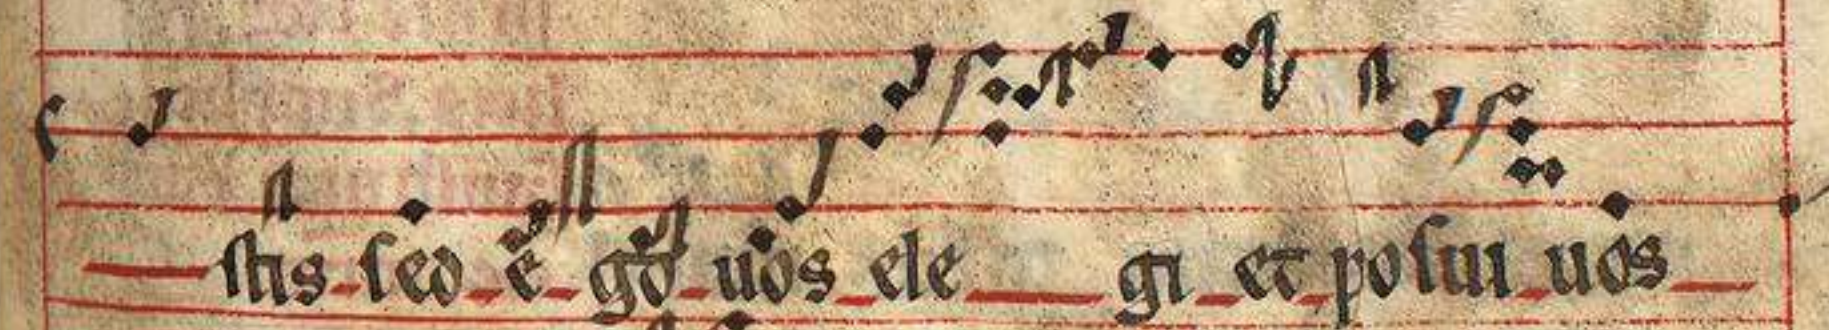 stis sed ego uos ele gi et posui uos